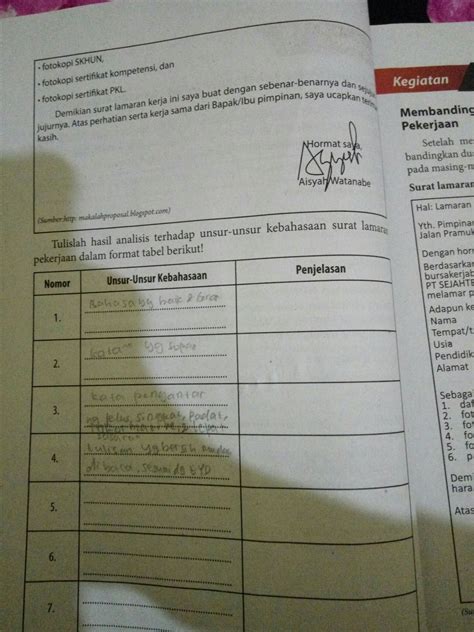 • fotokopi SKHUN,
• fotokopi sertifikat kompetensi, dan
• fotokopi sertifikat PKL.
Demikian surat lamaran kerja ini saya buat dengan sebenar-benarnya dan
jujurnya. Atas perhatian serta kerja sama dari Bapak/Ibu pimpinan, saya ucapkan
kasih.
Hormat saya,
Aisyah Watanabe
(Sumber:http. makalahproposal.blogspot.com)
Tulislah hasil analisis terhadap unsur-unsur kebahasaan surat lamaran
pekerjaan dalam format tabel berikut!
Nomor Unsur-Unsur Kebahasaan Penjelasan
1. Bahasa yg baik &
2. kata yg
3. kata pengantar
jelas, singkat, padat,
4. tulisan yg
dibaca, sesuai dg EYD
5.
6.
7.
Kegiatan
Membanding
Pekerjaan
Setelah me
bandingkan du
pada masing-m
Surat lamaran
Hal: Lamaran
Yth. Pimpinan
Jalan Pramuk
Dengan horm
Berdasarkan
bursakerjab
PT SEJAHTE
melamar p
Adapun ke
Nama
Tempat/t
Usia
Pendidik
Alamat
Sebaga
1. daf
2. fot
3. fo
4. fo
5. fo
6. p
Dem
hara
Atas
(Su